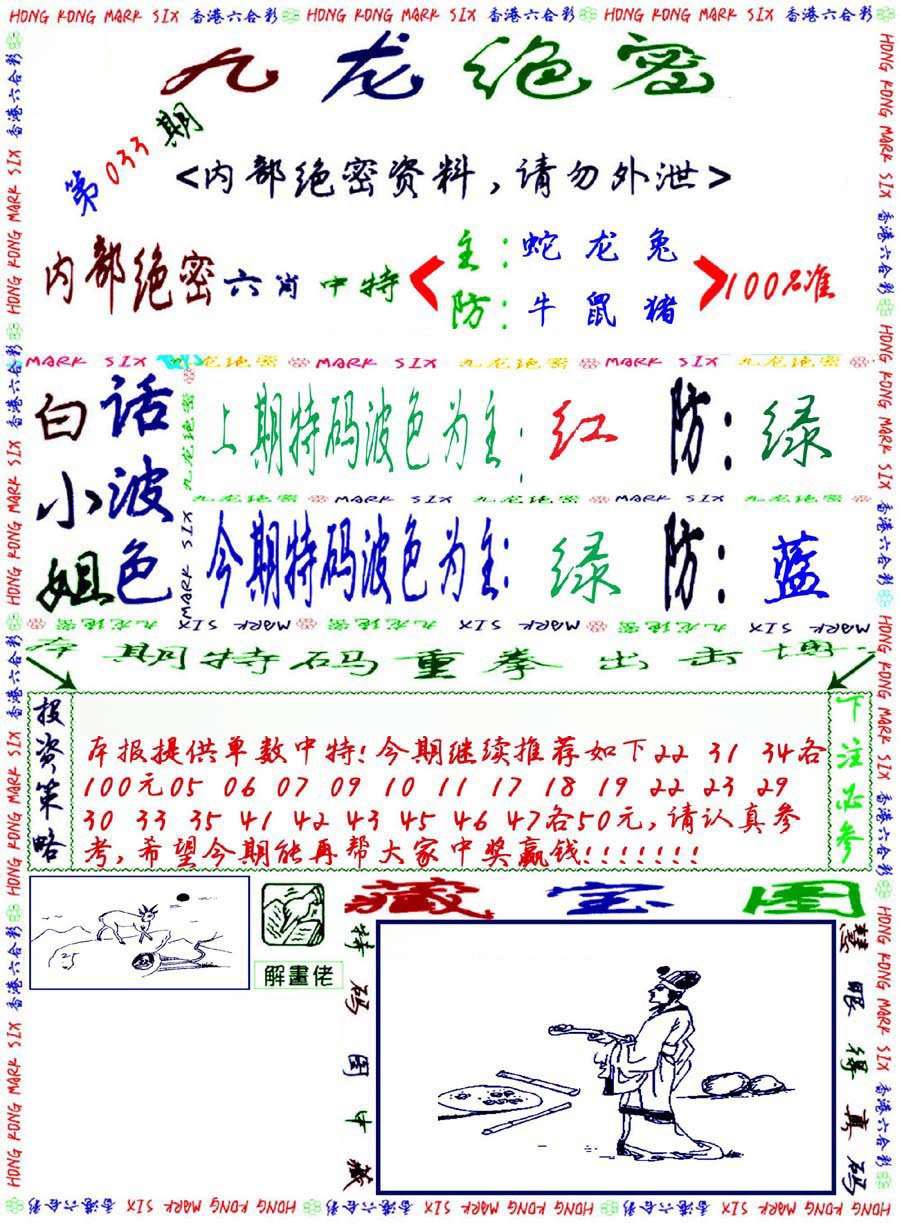 HONG KONG MARK SIX 香港六合彩 HONG KONG MARK SIX 香港六合彩 HONG KONG MARK SIX 香港六合彩
九龙绝密
第033期
<内部绝密资料，请勿外泄>
内部绝密六肖中特
主：蛇 龙 兔
防：牛 鼠 猪
100%准
MARK SIX 九龙绝密 MARK SIX 九龙绝密 MARK SIX 九龙绝密
白话
小波
姐色
上期特码波色为主：红 防：绿
九龙绝密 MARK SIX 九龙绝密 MARK SIX 九龙绝密
今期特码波色为主：绿 防：蓝
MARK SIX 九龙绝密 MARK SIX 九龙绝密 MARK SIX 九龙绝密
本期特码重拳出击博
投资策略
本报提供单数中特!今期继续推荐如下22 31 34各
100元05 06 07 09 10 11 17 18 19 22 23 29
30 33 35 41 42 43 45 46 47各50元,请认真参
考,希望今期能再帮大家中奖赢钱!!!!!!!
下注必参
解畫佬
藏宝图
特码图中藏
慧眼得真码
HONG KONG MARK SIX 香港六合彩 HONG KONG MARK SIX 香港六合彩 HONG KONG MARK SIX 香港六合彩